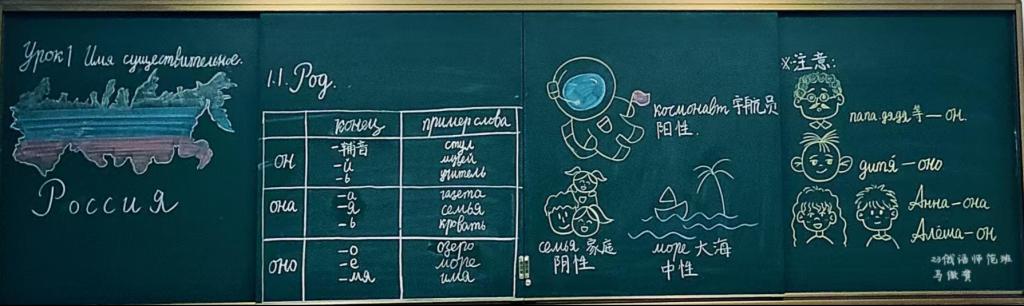 Урок 1 Имя существительное.
Россия
1.1. Род.
конец пример слова
он
-辅音 стул
-й музей
-ь учитель
она
-а газета
-я семья
-ь кровать
оно
-о озеро
-е море
-мя имя
космонавт 宇航员
阳性.
семья 家庭
阴性
море 大海
中性
※注意:
папа.дядя等—он.
дитя—оно
Анна-она
Алёша-он
23俄语师范班